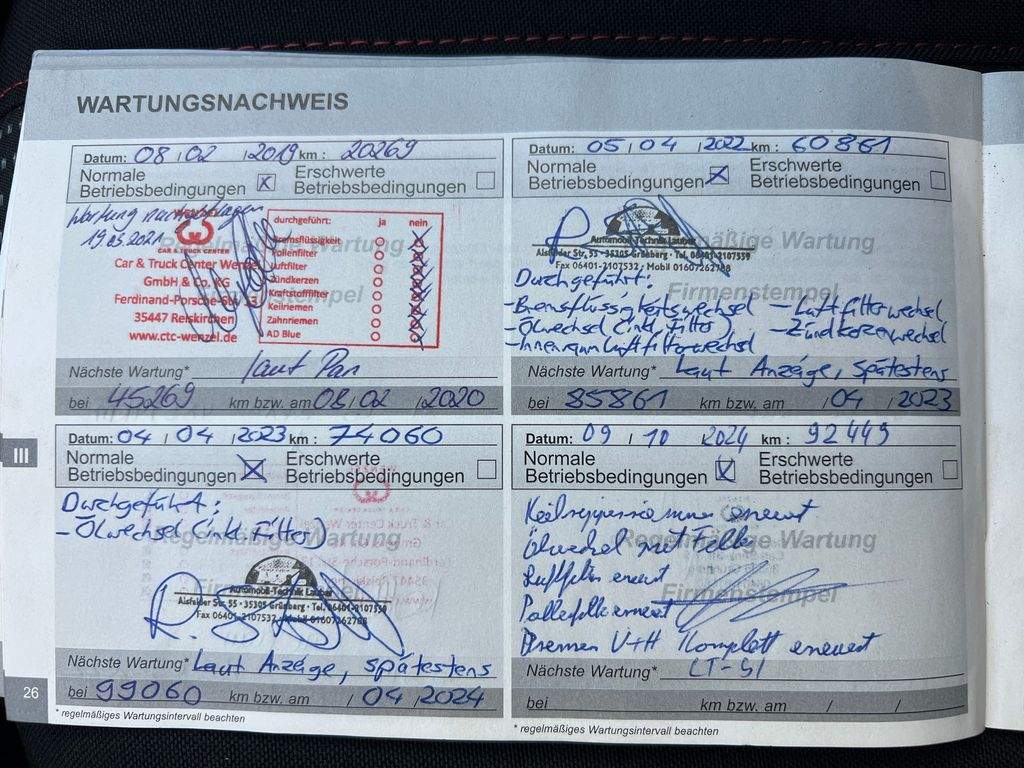 WARTUNGSNACHWEIS
Datum: 08 / 02 / 2019 km : 20269
Normale Betriebsbedingungen X Erschwerte Betriebsbedingungen
Wartung nachgetragen
19.05.2021
Regelmäßige Wartung
Firmenstempel
CAR & TRUCK CENTER
Car & Truck Center Wenzel
GmbH & Co. KG
Ferdinand-Porsche-Str. 13
35447 Reiskirchen
www.ctc-wenzel.de
durchgeführt: ja nein
Bremsflüssigkeit
Pollenfilter
Luftfilter
Zündkerzen
Kraftstofffilter
Keilriemen
Zahnriemen
AD Blue
Nächste Wartung*
bei 45269 km bzw. am 08 / 02 / 2020
Datum: 05 / 04 / 2022 km : 60861
Normale Betriebsbedingungen X Erschwerte Betriebsbedingungen
Regelmäßige Wartung
Firmenstempel
Automobil-Technik Lauber
Alsfelder Str. 55 · 35305 Grünberg · Tel. 06401-2107559
Fax 06401-2107532 · Mobil 01607262788
Durchgeführt:
- Bremsflüssigkeitswechsel - Luftfilterwechsel
- Ölwechsel (inkl. Filter) - Zündkerzenwechsel
- Innenraumluftfilterwechsel
Nächste Wartung* Laut Anzeige, spätestens
bei 85861 km bzw. am / 04 / 2023
Datum: 04 / 04 / 2023 km : 74060
Normale Betriebsbedingungen X Erschwerte Betriebsbedingungen
Durchgeführt:
- Ölwechsel (inkl. Filter)
Regelmäßige Wartung
Firmenstempel
Automobil-Technik Lauber
Alsfelder Str. 55 · 35305 Grünberg · Tel. 06401-2107559
Fax 06401-2107532 · Mobil 01607262788
Nächste Wartung* Laut Anzeige, spätestens
bei 99060 km bzw. am / 04 / 2024
Datum: 09 / 10 2024 km : 92449
Normale Betriebsbedingungen X Erschwerte Betriebsbedingungen
Regelmäßige Wartung
Firmenstempel
erneut
Ölwechsel mit
Luftfilter erneut
erneut
Bremsen V+H Komplett erneuert
Nächste Wartung*
bei km bzw. am / /
III
26
* regelmäßiges Wartungsintervall beachten
* regelmäßiges Wartungsintervall beachten